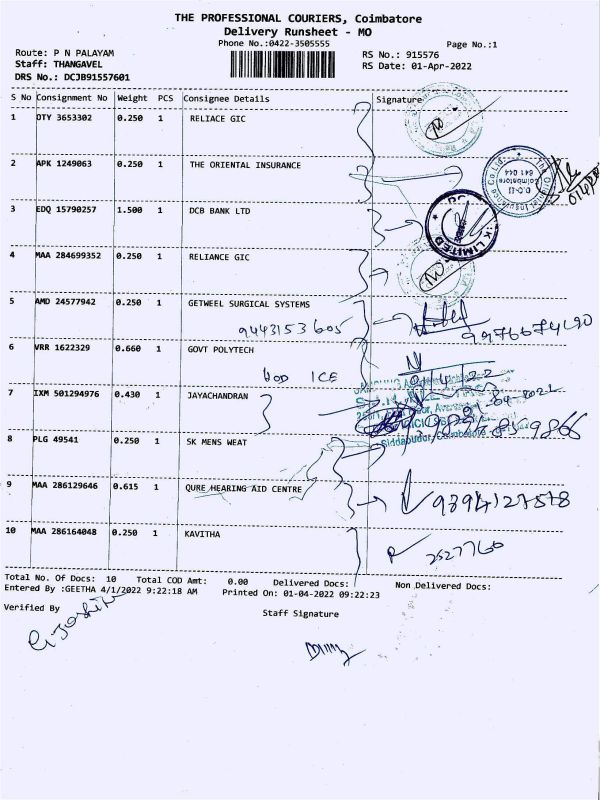 THE PROFESSIONAL COURIERS, Coimbatore
Delivery Runsheet - MO
Phone No.:0422-3505555
Page No.:1
Route: P N PALAYAM
RS No.: 915576
Staff: THANGAVEL
RS Date: 01-Apr-2022
DRS No.: DCJB91557601
S No Consignment No Weight PCS Consignee Details Signature
1 OTY 3653302 0.250 1 RELIACE GIC
2 APK 1249063 0.250 1 THE ORIENTAL INSURANCE
3 EDQ 15790257 1.500 1 DCB BANK LTD
4 MAA 284699352 0.250 1 RELIANCE GIC
5 AMD 24577942 0.250 1 GETWEEL SURGICAL SYSTEMS
9443153605
6 VRR 1622329 0.660 1 GOVT POLYTECH
HOD ICE
7 IXM 501294976 0.430 1 JAYACHANDRAN
8 PLG 49541 0.250 1 SK MENS WEAT
9 MAA 286129646 0.615 1 QURE HEARING AID CENTRE
10 MAA 286164048 0.250 1 KAVITHA
2527760
Total No. Of Docs: 10 Total COD Amt: 0.00 Delivered Docs: Non Delivered Docs:
Entered By :GEETHA 4/1/2022 9:22:18 AM Printed On: 01-04-2022 09:22:23
Verified By
Staff Signature